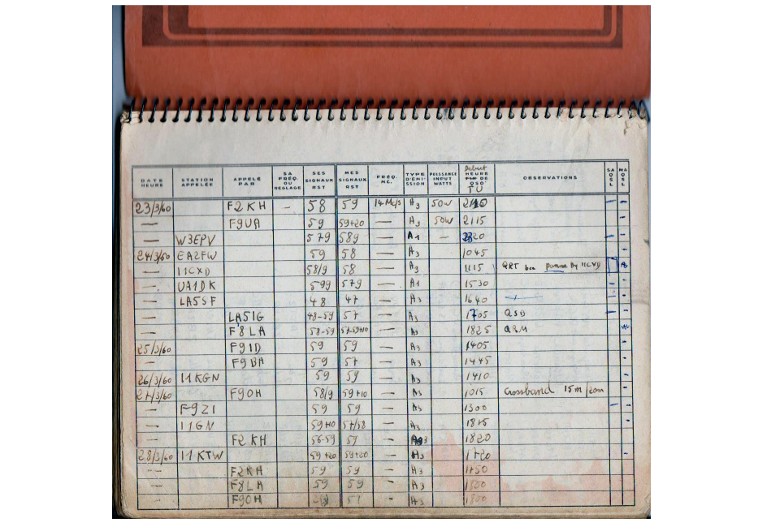 DATE HEURE STATION APPELÉE APPELÉ PAR SA FRÉQ. OU RÉGLAGE SES SIGNAUX RST MES SIGNAUX RST FREQ. MC. TYPE D'ÉMISSION PUISSANCE INPUT WATTS Début HEURE DE QSO TU OBSERVATIONS SA QSL MA QSL
23/3/60 F2KH — 58 59 14 Mc/s A3 50w
— F9UA 59 59+20 — A3 50w 2115
— W3EPV 579 589 — A1 —
24/3/60 EA2FW 59 58 — A3 1045
— I1CXD 58/9 58 — A3 1115 QRT
— UA1DK 599 579 — A1 1530
— LA5SF 48 47 — A3 1640
— LA5IG 49-59 57 — A3 1705 QSD
— F8LA 58-59 — A3 1825 QRM
25/3/60 F9ID 59 59 — A3 1405
— F9BA 59 57 — A3 1445
26/3/60 I1KGN 59 59 — A3 1410
27/3/60 F9OH 58/9 59+10 — A3 1015 Crossband 15m/20m
— F9ZI 59 59 — A3 1500
— I1GN 59+10 57/58 — A3 1815
— F2KH 56-59 57 — 1820
28/3/60 I1KTW 59+20 59+20 — A3
F2KH 59 59 — A3
— F8LA 59 59 — A3
F9OH 57 — A3